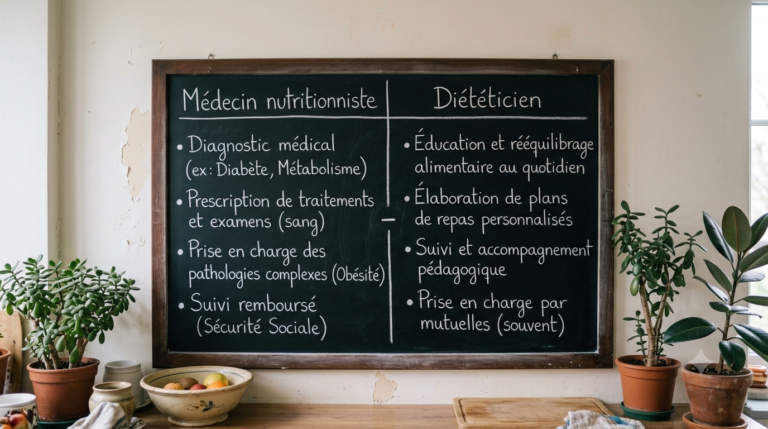 Médecin nutritionniste
• Diagnostic médical
(ex: Diabète, Métabolisme)
• Prescription de traitements
et examens (sang)
• Prise en charge des
pathologies complexes (Obésité)
• Suivi remboursé
(Sécurité Sociale)
Diététicien
• Éducation et rééquilibrage
alimentaire au quotidien
• Élaboration de plans
de repas personnalisés
• Suivi et accompagnement
pédagogique
• Prise en charge par
mutuelles (souvent)